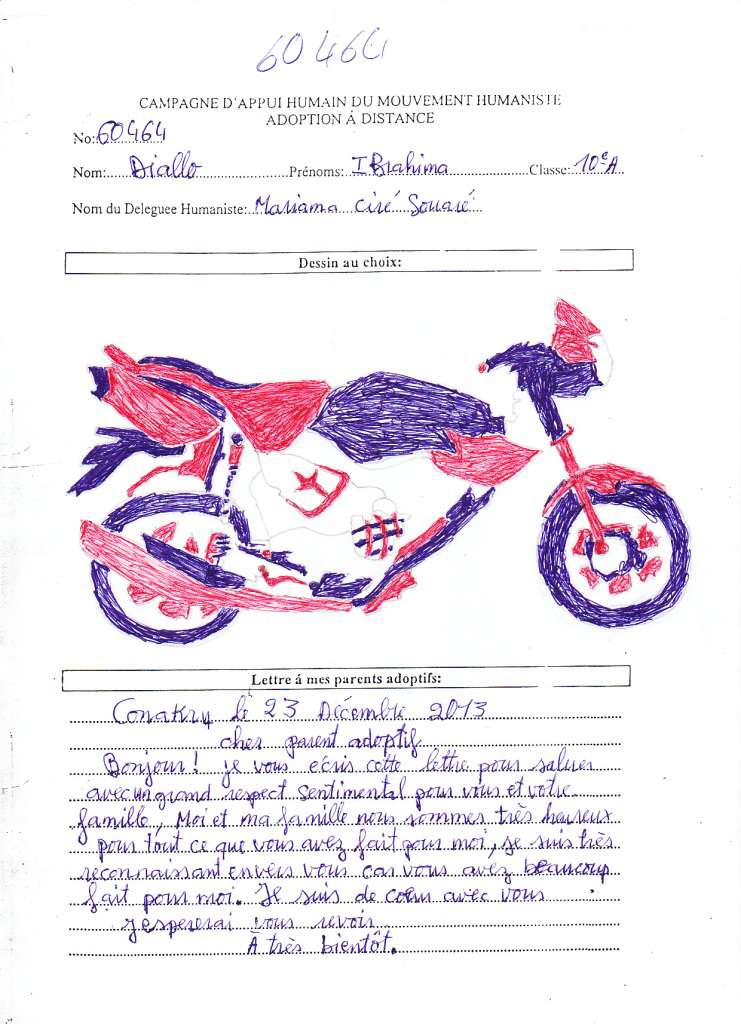 60464
CAMPAGNE D'APPUI HUMAIN DU MOUVEMENT HUMANISTE
ADOPTION Á DISTANCE
No: 60464
Nom: Diallo Prénoms: IBrahima Classe: 10e A
Nom du Deleguee Humaniste: Mariama Ciré Souaré
Dessin au choix:
Lettre á mes parents adoptifs:
Conakry le 23 Décembre 2013
cher parent adoptif
Bonjour! je vous écris cette lettre pour saluer
avec un grand respect sentimental pour vous et votre
famille, Moi et ma famille nous sommes très heureux
pour tout ce que vous avez fait pour moi, je suis très
reconnaissant envers vous car vous avez beaucoup
fait pour moi. Je suis de cœur avec vous
j'espererai vous revoir
À très bientôt.